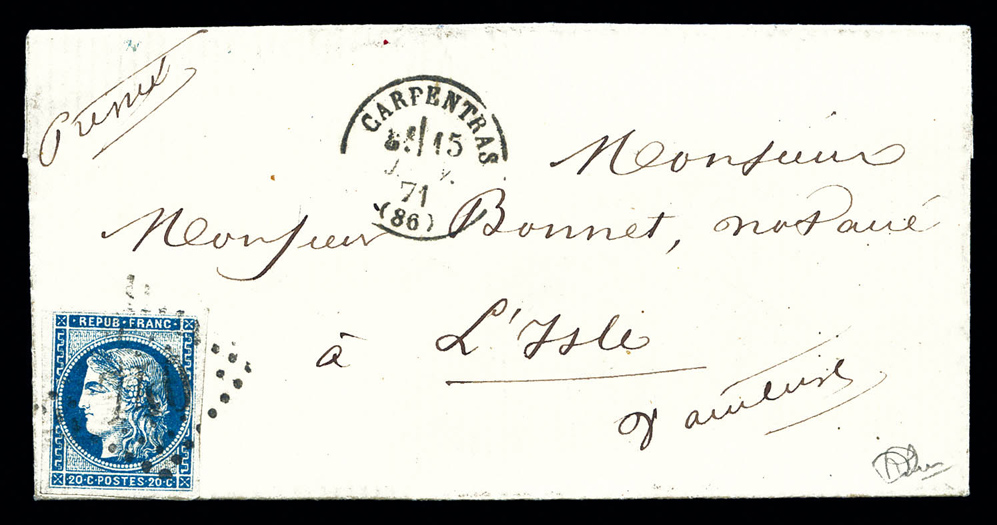 Pressée
CARPENTRAS
15
71
(86)
Monsieur
Monsieur Bonnet, notaire
à L'Isle
Vaucluse
REPUB·FRANC·
20·C·POSTES·20·C·